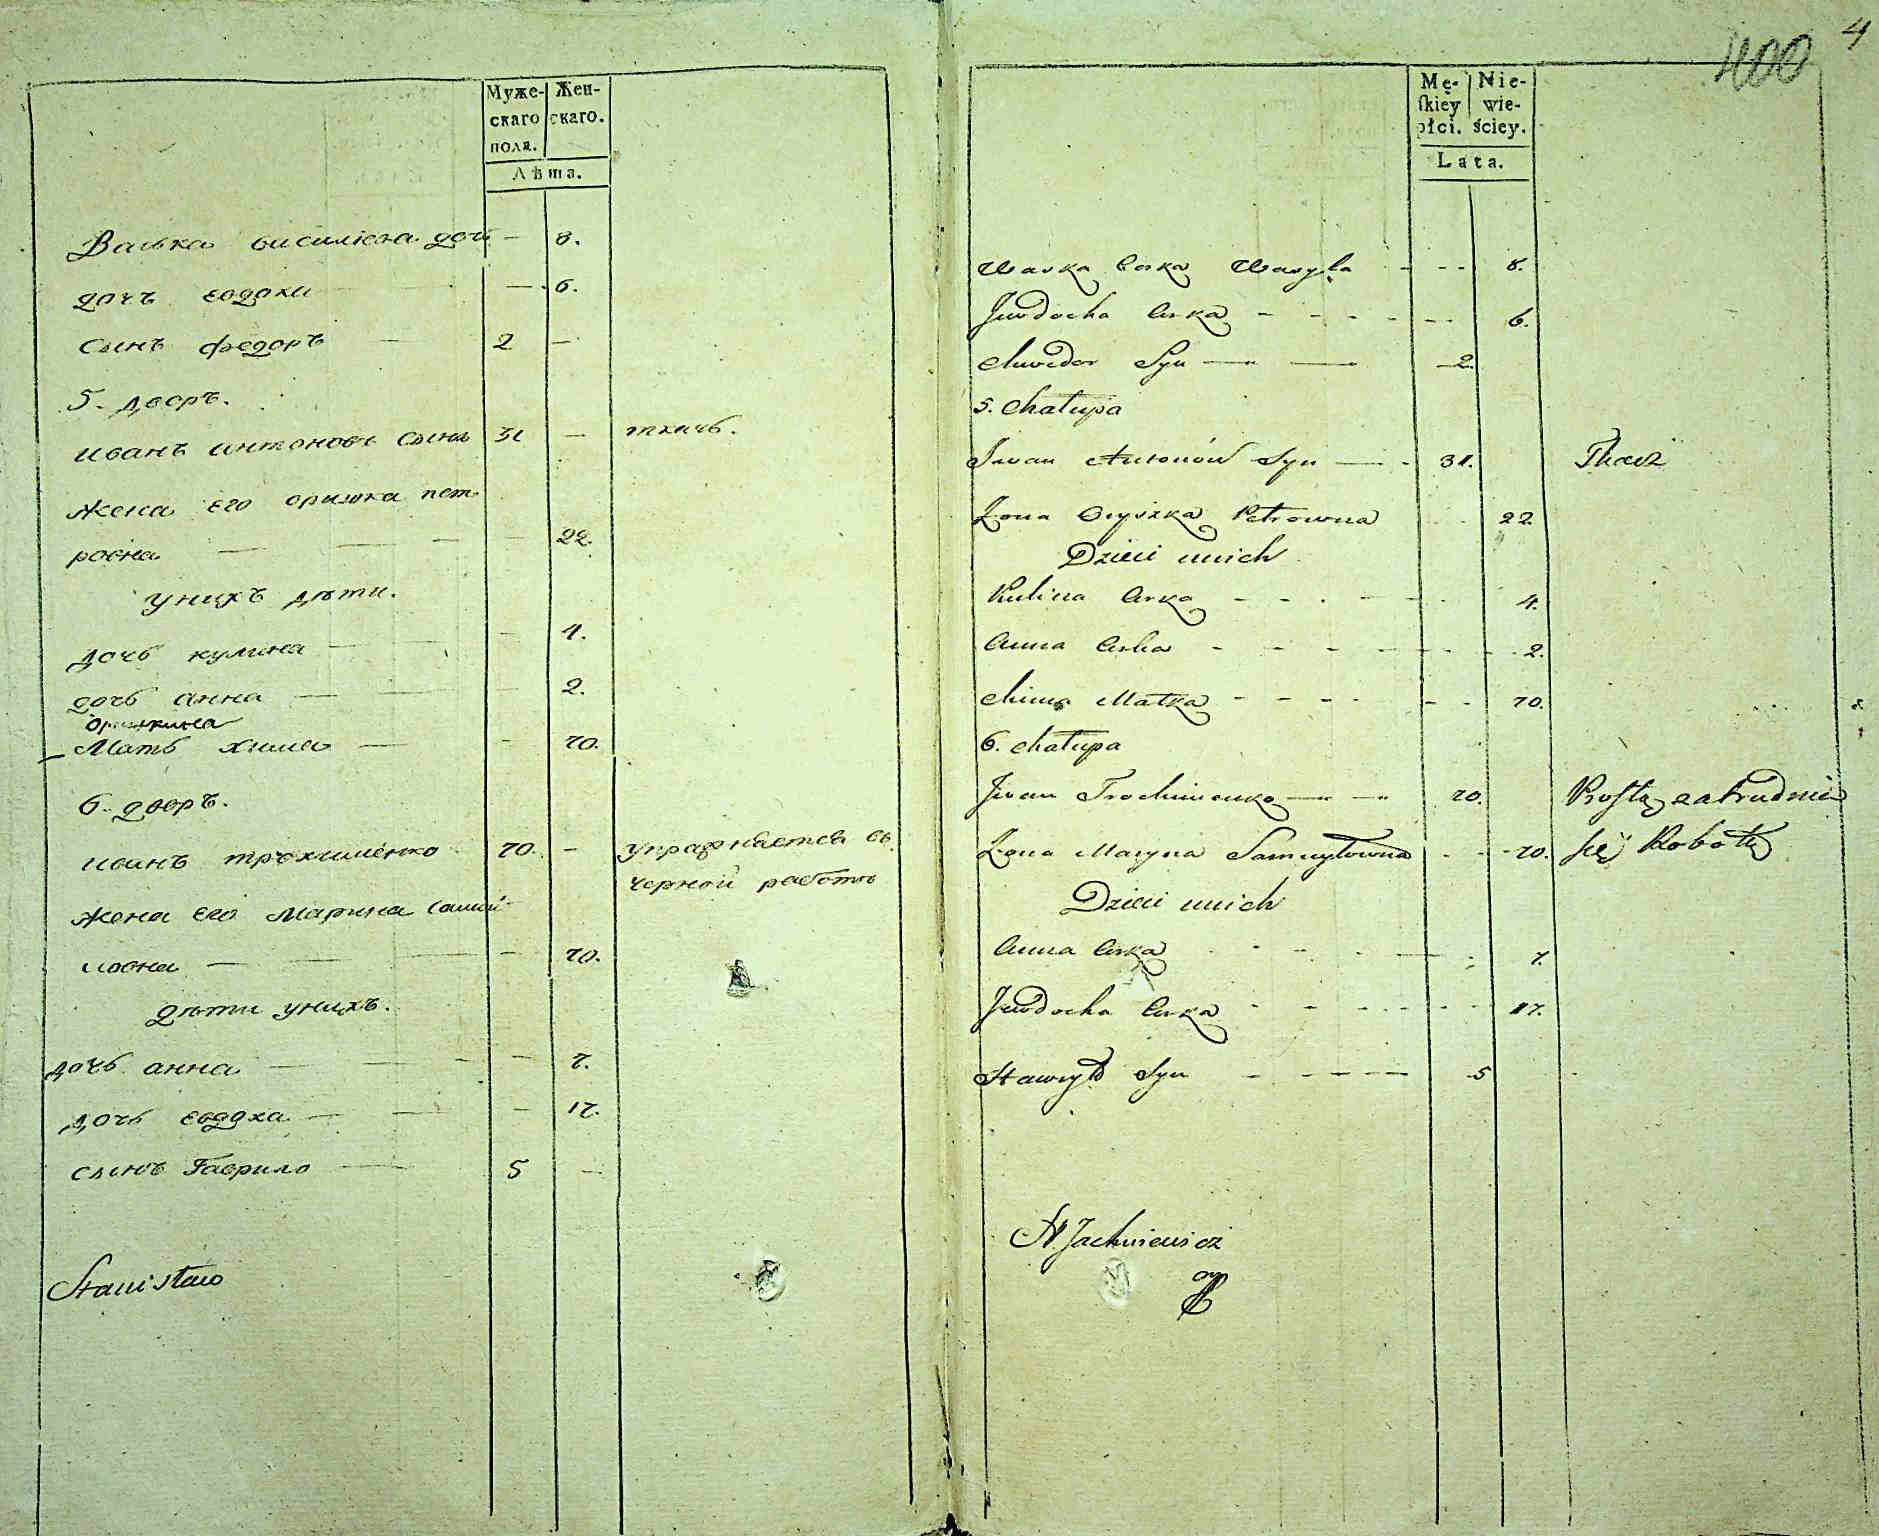 4
400
Муже-
скаго
пола.
Жен-
скаго.
Лѣта.
Васька василієва дочь — 8.
дочъ евдоха — 6.
сынъ федоръ — 2 —
5. дворъ.
иванъ антоновъ сынъ 31 — ткачъ.
жена его оришка пет
ровна — 22.
унихъ дѣти.
дочь кулина — 4.
дочь анна — 2.
оришкина
Мать хима — 70.
6. дворъ.
иванъ трохименко 70. — упражнается въ
черной работѣ
жена его Марина самой
ловна — 70.
дѣти унихъ.
дочь анна — 7.
дочь евдоха — 17.
сынъ Гаврило — 5 —
Stanisław
Mę-
skiey
płci.
Nie-
wie-
ściey.
Lata.
Waska Corka Wasyla - - - 8.
Jewdocha Corka - - - 6.
Chwedor Syn — — 2.
5. Chałupa
Iwan Antonów Syn — 31. Tkacz
Zona Oryszka Petrowna 22
Dzieci unich
Kulina Corka - - - 4.
Anna Corka - - - 2.
Chima Matka - - - 70.
6. Chałupa
Jwan Trochimenko — — 70. Prostą zatrudnia
Zona Maryna Samuyłowna - - 70. się Robotą
Dzieci unich
Anna Corka - - - 7.
Jewdocha Corka - - - 17.
Hawryło Syn - - - 5
Jachniewicz